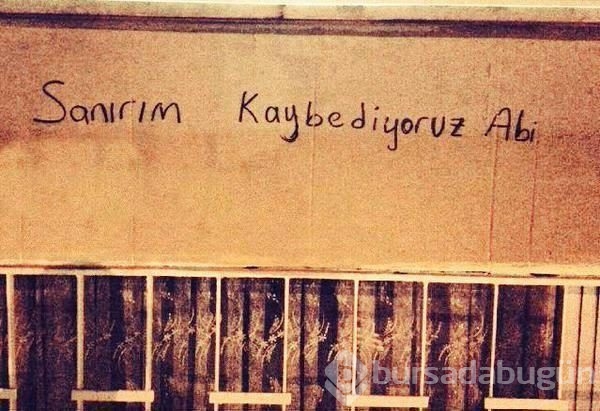 Sanırım Kaybediyoruz Abi
bursadabugün